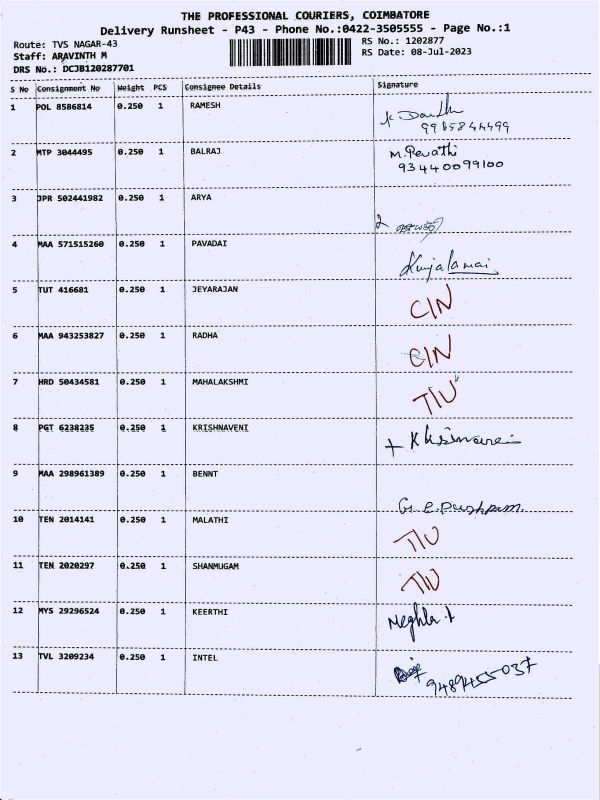 THE PROFESSIONAL COURIERS, COIMBATORE
Delivery Runsheet - P43 - Phone No.:0422-3505555 - Page No.:1
Route: TVS NAGAR-43 RS No.: 1202877
Staff: ARAVINTH M RS Date: 08-Jul-2023
DRS No.: DCJB120287701
S No Consignment No Weight PCS Consignee Details Signature
1 POL 8586814 0.250 1 RAMESH
2 MTP 3044495 0.250 1 BALRAJ M. Revathi
93440099100
3 JPR 502441982 0.250 1 ARYA
4 MAA 571515260 0.250 1 PAVADAI
5 TUT 416681 0.250 1 JEYARAJAN C/N
6 MAA 943253827 0.250 1 RADHA C/N
7 HRD 50434581 0.250 1 MAHALAKSHMI T/U
8 PGT 6238235 0.250 1 KRISHNAVENI
9 MAA 298961389 0.250 1 BENNT G. E. Pushpam.
10 TEN 2014141 0.250 1 MALATHI T/U
11 TEN 2020297 0.250 1 SHANMUGAM T/U
12 MYS 29296524 0.250 1 KEERTHI Meghla
13 TVL 3209234 0.250 1 INTEL 9489455037